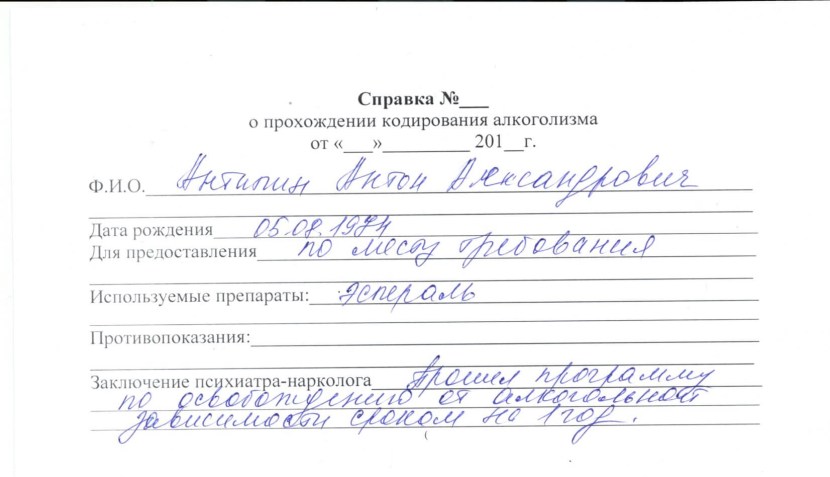 Справка №___
о прохождении кодирования алкоголизма
от «___»_________ 201__г.
Ф.И.О. Антипин Антон Александрович
Дата рождения 05.08.1974
Для предоставления по месту требования
Используемые препараты: Эспераль
Противопоказания:
Заключение психиатра-нарколога Прошел программу
по освобождению от алкогольной
зависимости сроком на 1 год.